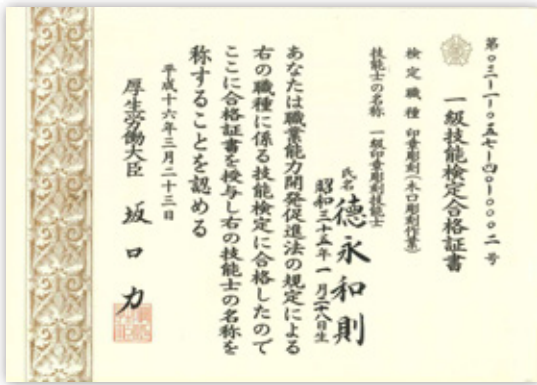 第〇三-一-〇五七-四〇-〇〇〇二号
一級技能検定合格証書
検定職種 印章彫刻(木口彫刻作業)
技能士の名称 一級印章彫刻技能士
氏名 德永和則
昭和三十五年一月二十八日生
あなたは職業能力開発促進法の規定による
右の職種に係る技能検定に合格したので
ここに合格証書を授与し右の技能士の名称を
称することを認める
平成十六年三月二十三日
厚生労働大臣 坂口力